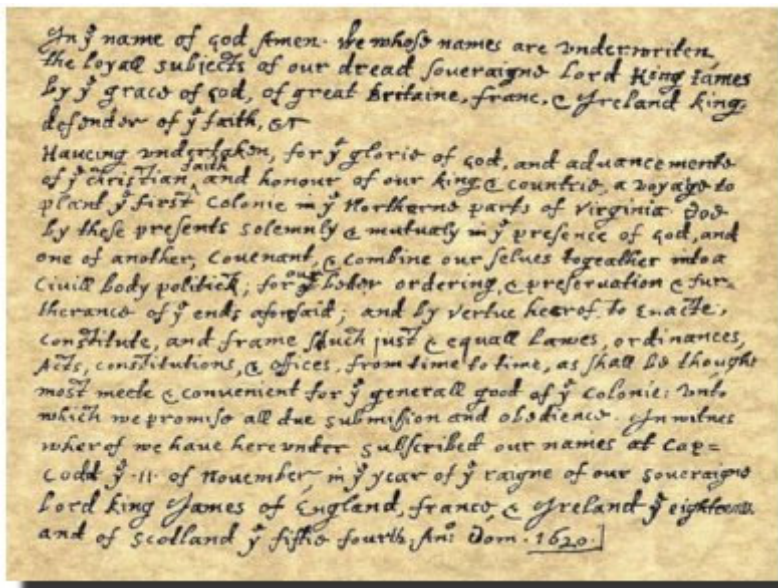 In yͤ name of god Amen· We whose names are vnderwriten,
the loyall subjects of our dread soueraigne Lord King James
by yͤ grace of god, of great Britaine, franc, & Ireland king,
defender of yͤ faith, &c
Haueing vndertaken, for yͤ glorie of god, and aduancemente
of yͤ christian faith and honour of our king & countrie, a voyage to
plant yͤ first Colonie in yͤ Northerne parts of Virginia· doe
by these presents solemnly & mutualy in yͤ presence of god, and
one of another, couenant, & combine our selues togeather into a
Ciuill body politick; for our better ordering, & preseruation & fur=
therance of yͤ ends aforesaid; and by vertue hearof, to Enacte,
constitute, and frame such just & equall Lawes, ordinances,
Acts, constitutions, & offices, from time to time, as shall be thought
most meete & conuenient for yͤ generall good of yͤ colonie: vnto
which we promise all due submission and obedience. In witnes
wherof we have herevnder subscribed our names at Cap=
Codd yͤ ·11· of Nouember, in yͤ year of yͤ raigne of our soueraigne
Lord king James of England, france & Ireland yͤ eighteen
and of Scotland yͤ fiftie fourth. Anº Dom· 1620·]